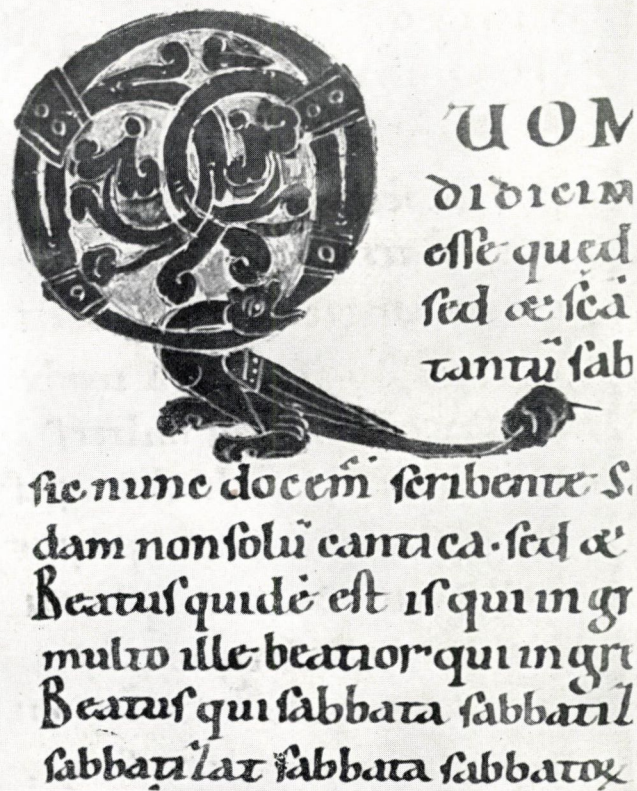 QUOM
didicim
esse quęd
sed & scā
tantū sab
sic nunc docem̄ scribente Sa
dam non solū cantica. sed &
Beatus quidē est is qui in gr
multo ille beatior qui in gre
Beatus qui sabbata sabbatiz
sabbatizat sabbata sabbatoꝝ